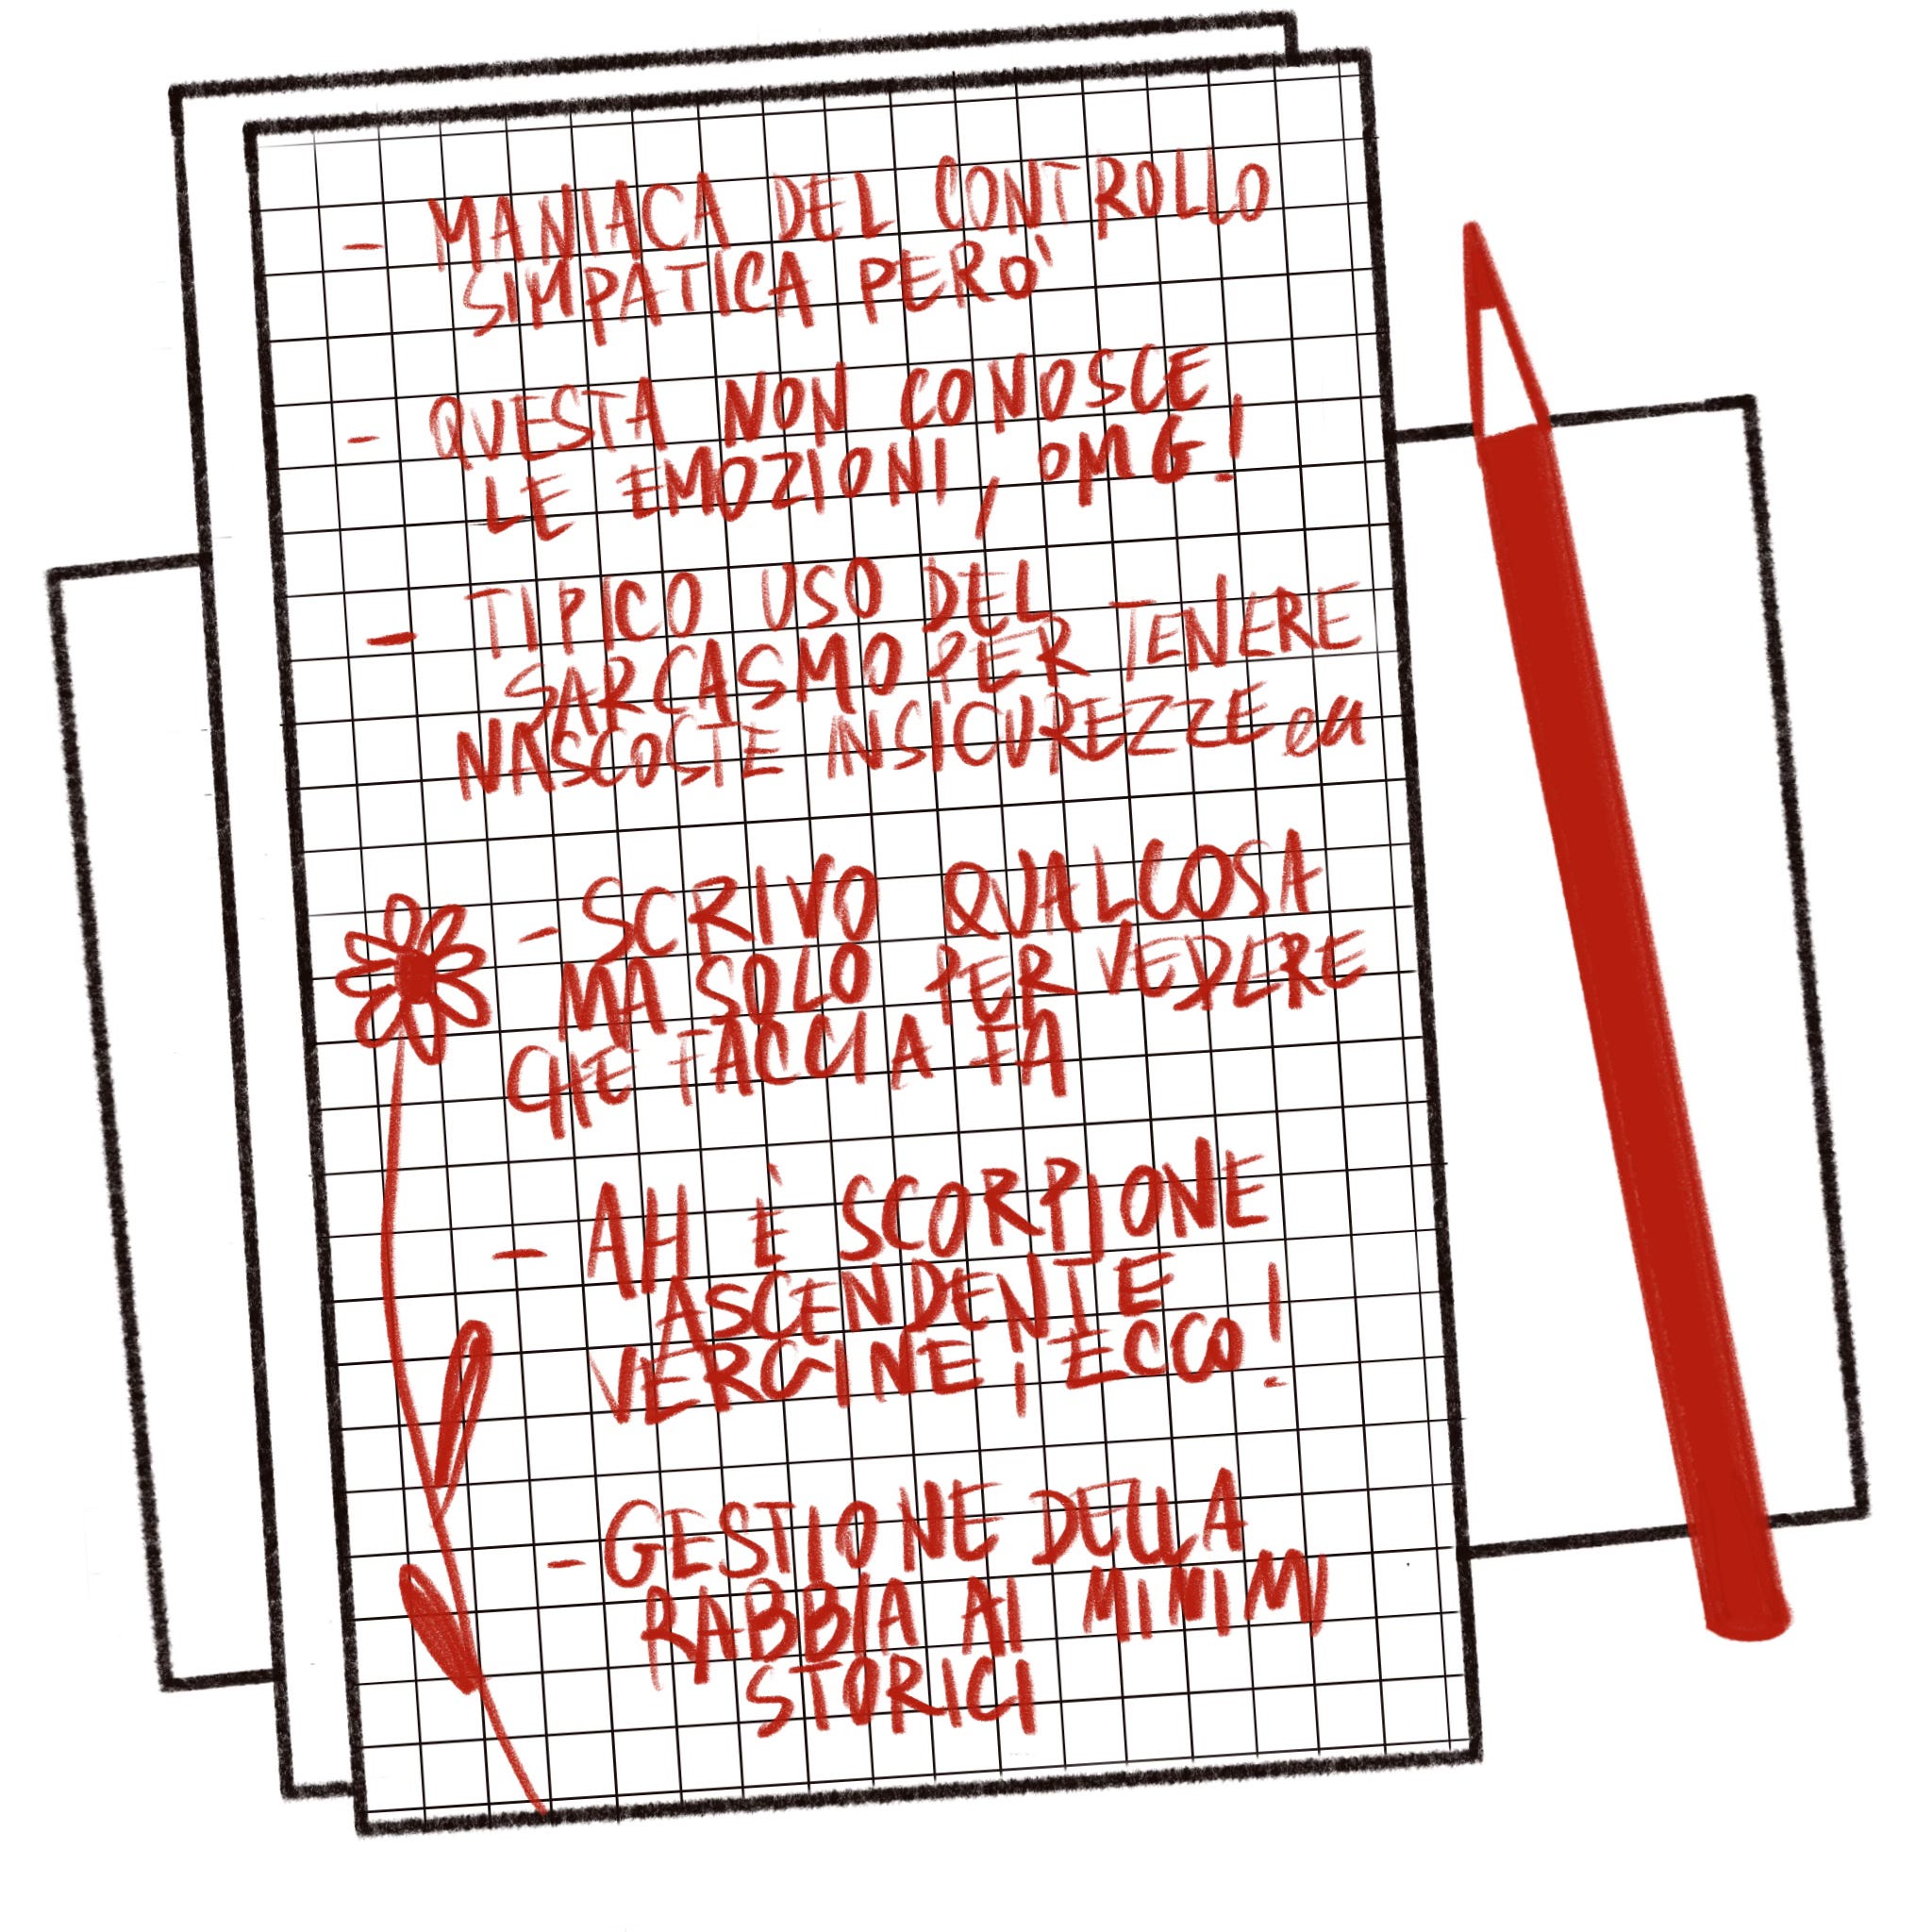 - MANIACA DEL CONTROLLO
SIMPATICA PERO'
- QUESTA NON CONOSCE
LE EMOZIONI, OMG!
- TIPICO USO DEL
SARCASMO PER TENERE
NASCOSTE INSICUREZZE
- SCRIVO QUALCOSA
MA SOLO PER VEDERE
CHE FACCIA FA
- AH È SCORPIONE
ASCENDENTE
VERGINE, ECCO!
- GESTIONE DELLA
RABBIA AI MINIMI
STORICI